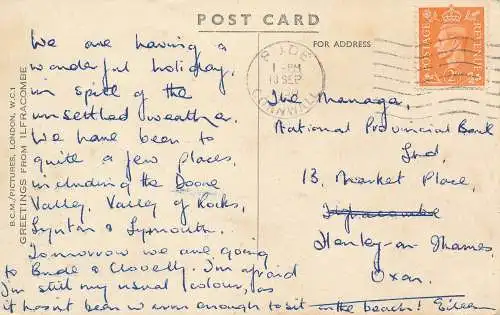 POST CARD
FOR ADDRESS
B.C.M./PICTURES, LONDON, W.C.1
GREETINGS FROM ILFRACOMBE
We are having a
wonderful holiday,
in spite of the
unsettled weather.
We have been to
quite a few places,
including the Doone
Valley, Valley of Rocks,
Lynton & Lynmouth.
Tomorrow we are going
to Bude & Clovelly. I'm afraid
I'm still my usual colour, as
it hasn't been warm enough to sit on the beach! Eileen
BUDE
1 - PM
13 SEP
CORNWALL
POSTAGE
REVENUE
The Manager,
National Provincial Bank
Ltd,
13, Market Place,
Ilfracombe
Henley-on-Thames,
Oxon.